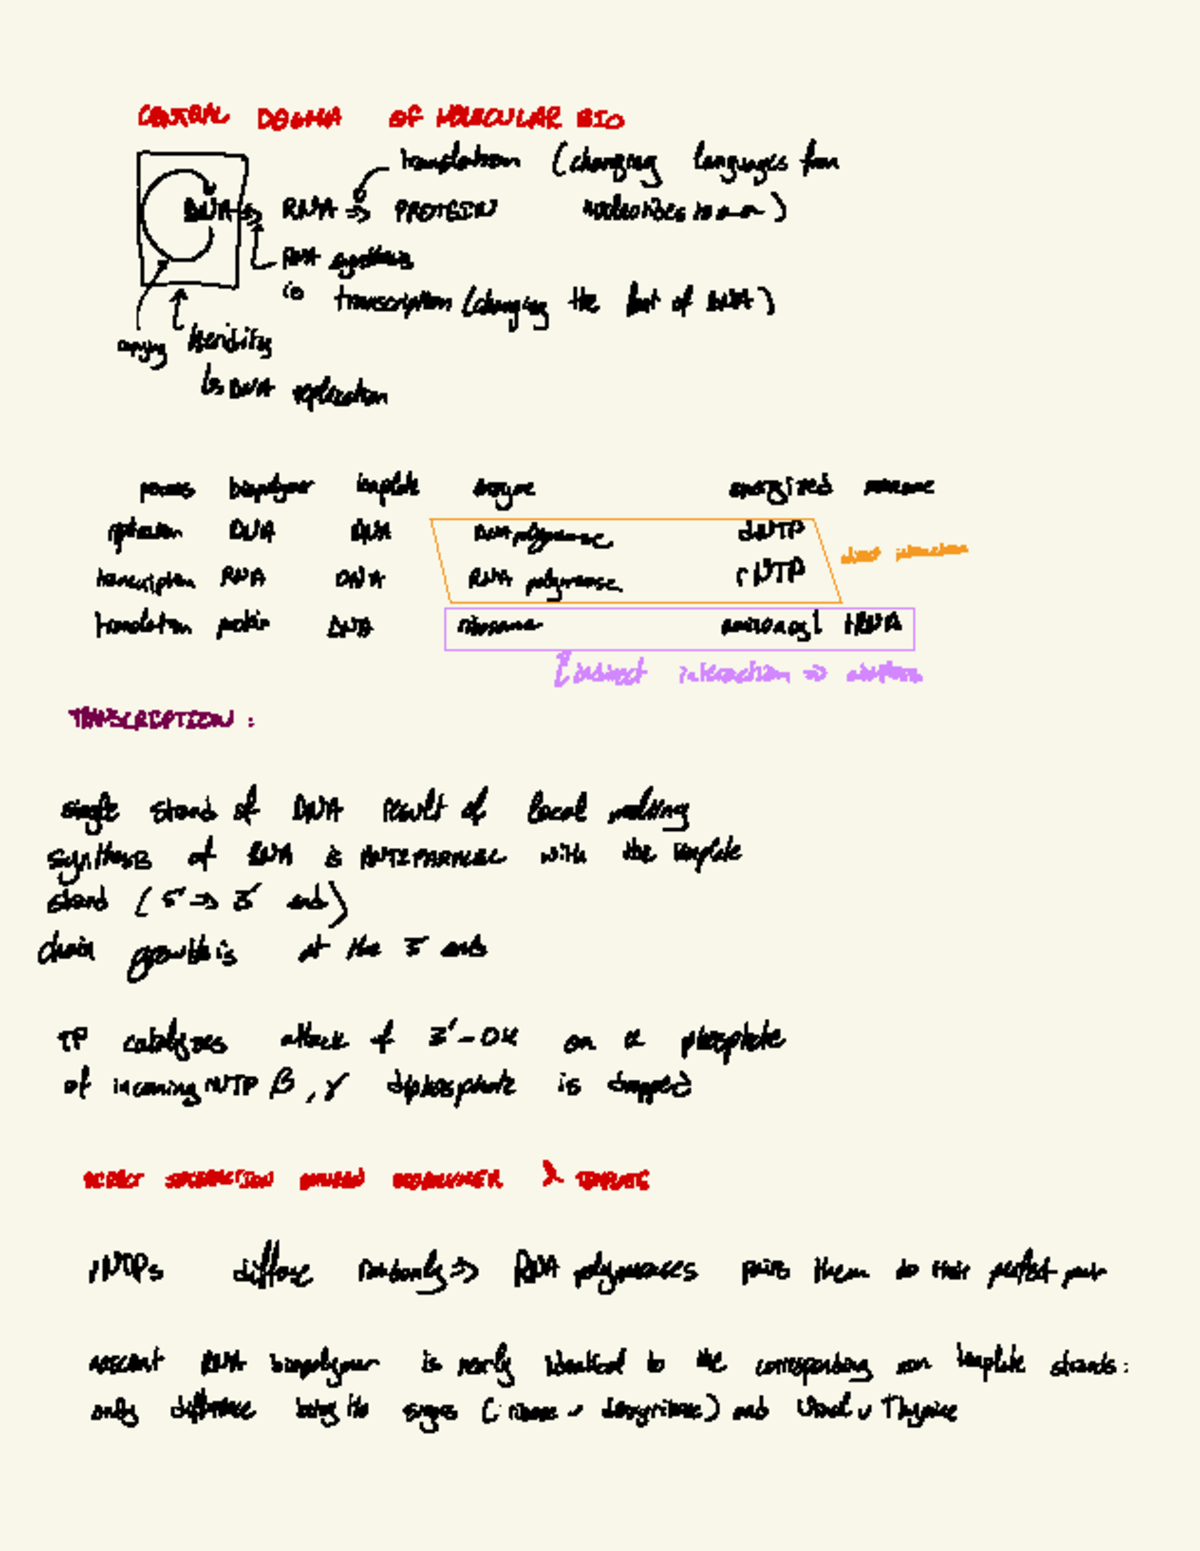 CENTRAL DOGMA OF MOLECULAR BIO
translation (changing languages from
DNA => RNA => PROTEIN nucleotides to a-a)
RNA synthesis
is transcription (changing the font of DNA)
copying heredity
↳ DNA replication
process biopolymer template enzyme energized monomer
replication DNA DNA DNA polymerase dNTP
direct interaction
transcription RNA DNA RNA polymerase rNTP
translation protein DNA ribosome aminoacyl tRNA
indirect interaction =>
TRANSCRIPTION:
single strand of DNA result of local melting
synthesis of RNA is ANTIPARALLEL with the template
strand (5' => 3' end)
chain growth is at the 3' ends
TP catalyzes attack of 3'-OH on α phosphate
of incoming NTP β, γ diphosphate is dropped
DIRECT INTERACTION BETWEEN & TEMPLATE
rNTPs diffuse randomly => RNA polymerases pairs them to their perfect pair
nascent RNA biopolymer is nearly identical to the corresponding non template strands:
only difference being the sugars (ribose v deoxyribose) and Uracil v Thymine